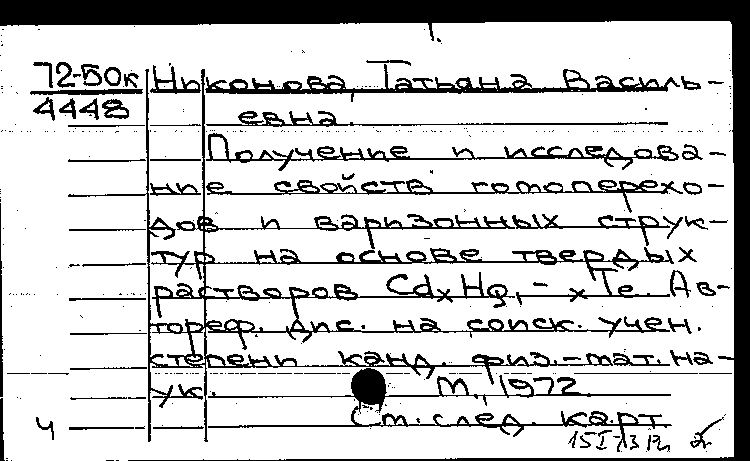 1.
72-50к Никонова, Татьяна Василь-
4448 евна.
Получение и исследова-
ние свойств гомоперехо-
дов и варизонных струк-
тур на основе твердых
растворов CdxHg1-xTe. Ав-
тореф. дис. на соиск. учен.
степени канд. физ.-мат. на-
ук. М., 1972.
Ч См. след. карт